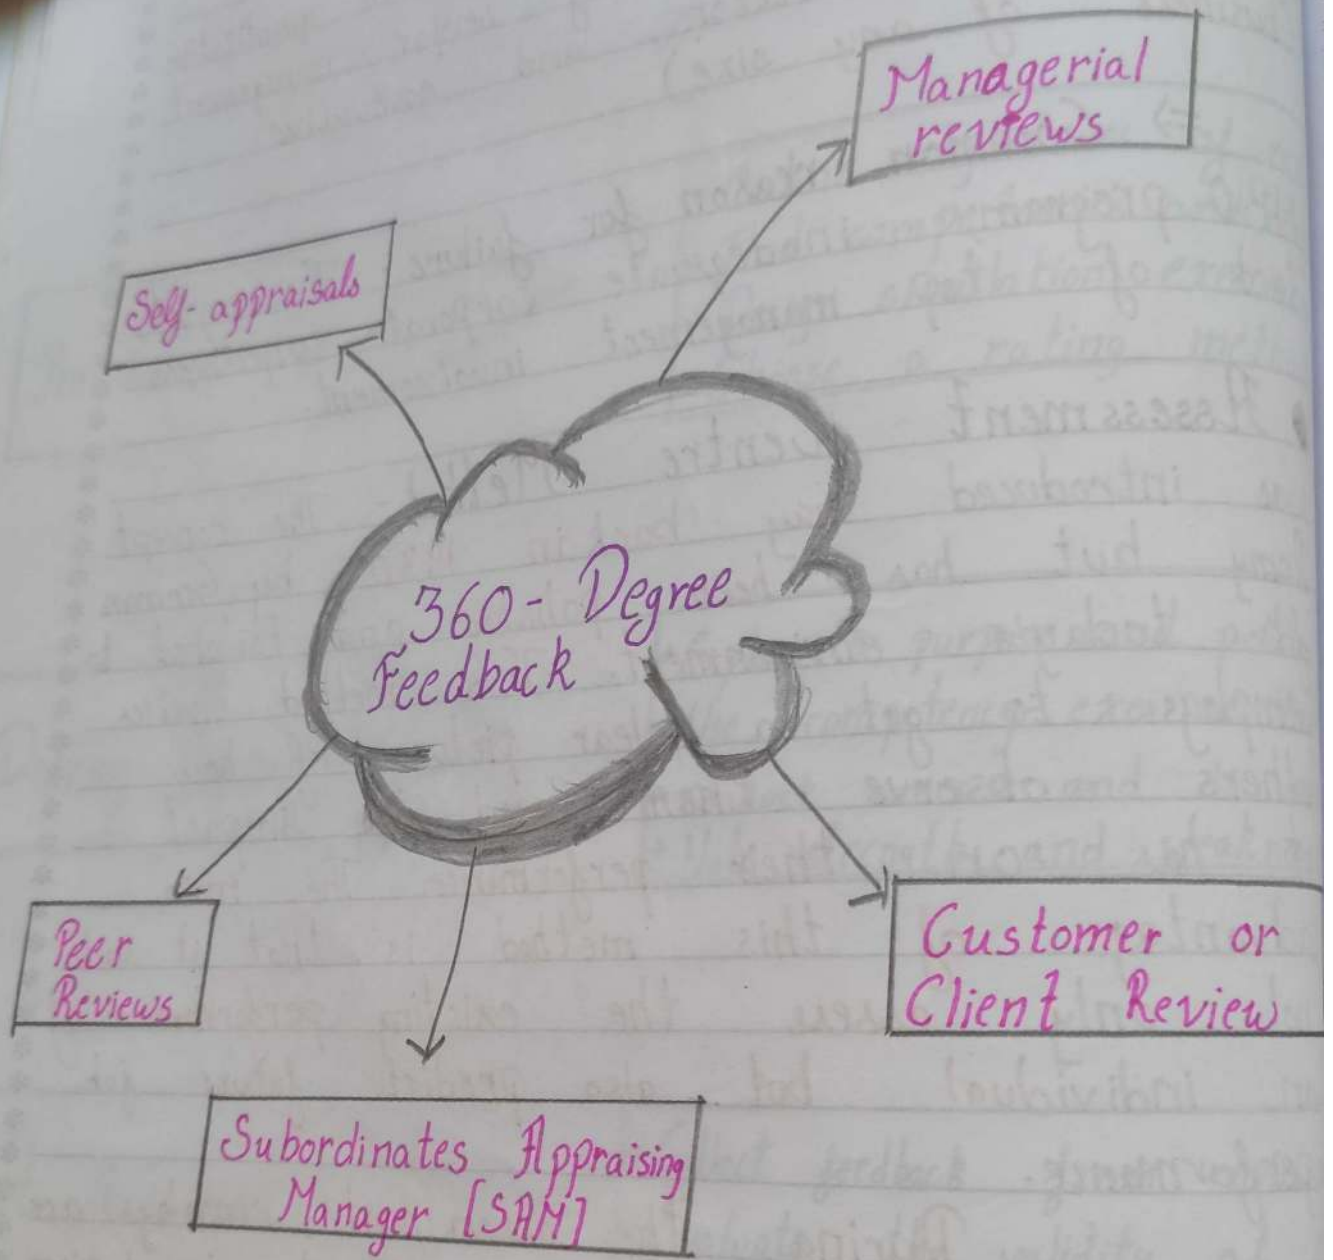 Managerial
reviews
Self-appraisals
360-Degree
Feedback
Peer
Reviews
Customer or
Client Review
Subordinates Appraising
Manager [SAM]